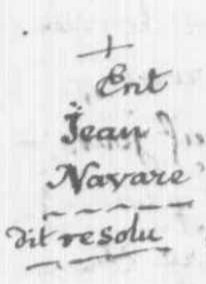 +
Ent
Jean
Navare
dit resolu